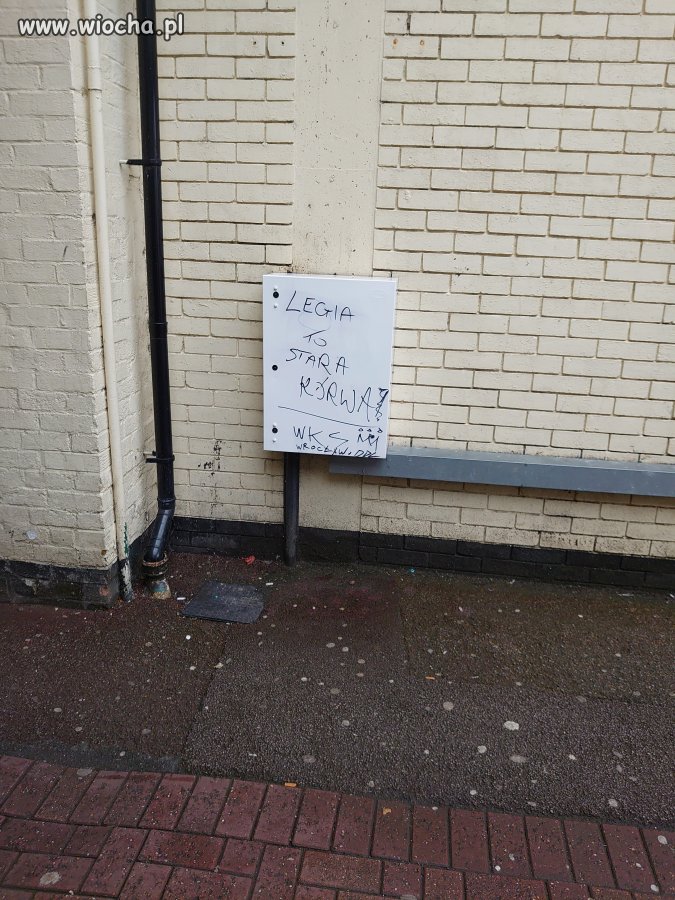 www.wiocha.pl
LEGIA
TO
STARA
KÓRWA!
WKS
WROCŁAW